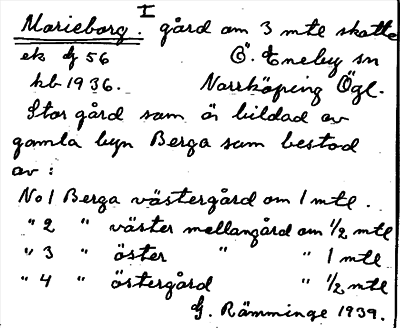 Marieborg. I gård om 3 mtl skatte
ek bl 56 Ö. Eneby sn
hb 1936. Norrköping Ögl.
Stor gård som är bildad av
gamla byn Berga som bestod
av:
No 1 Berga västergård om 1 mtl.
" 2 " väster mellangård om 1/2 mtl
" 3 " öster " " 1 mtl
" 4 " östergård " 1/2 mtl
G. Rämminge 1939.